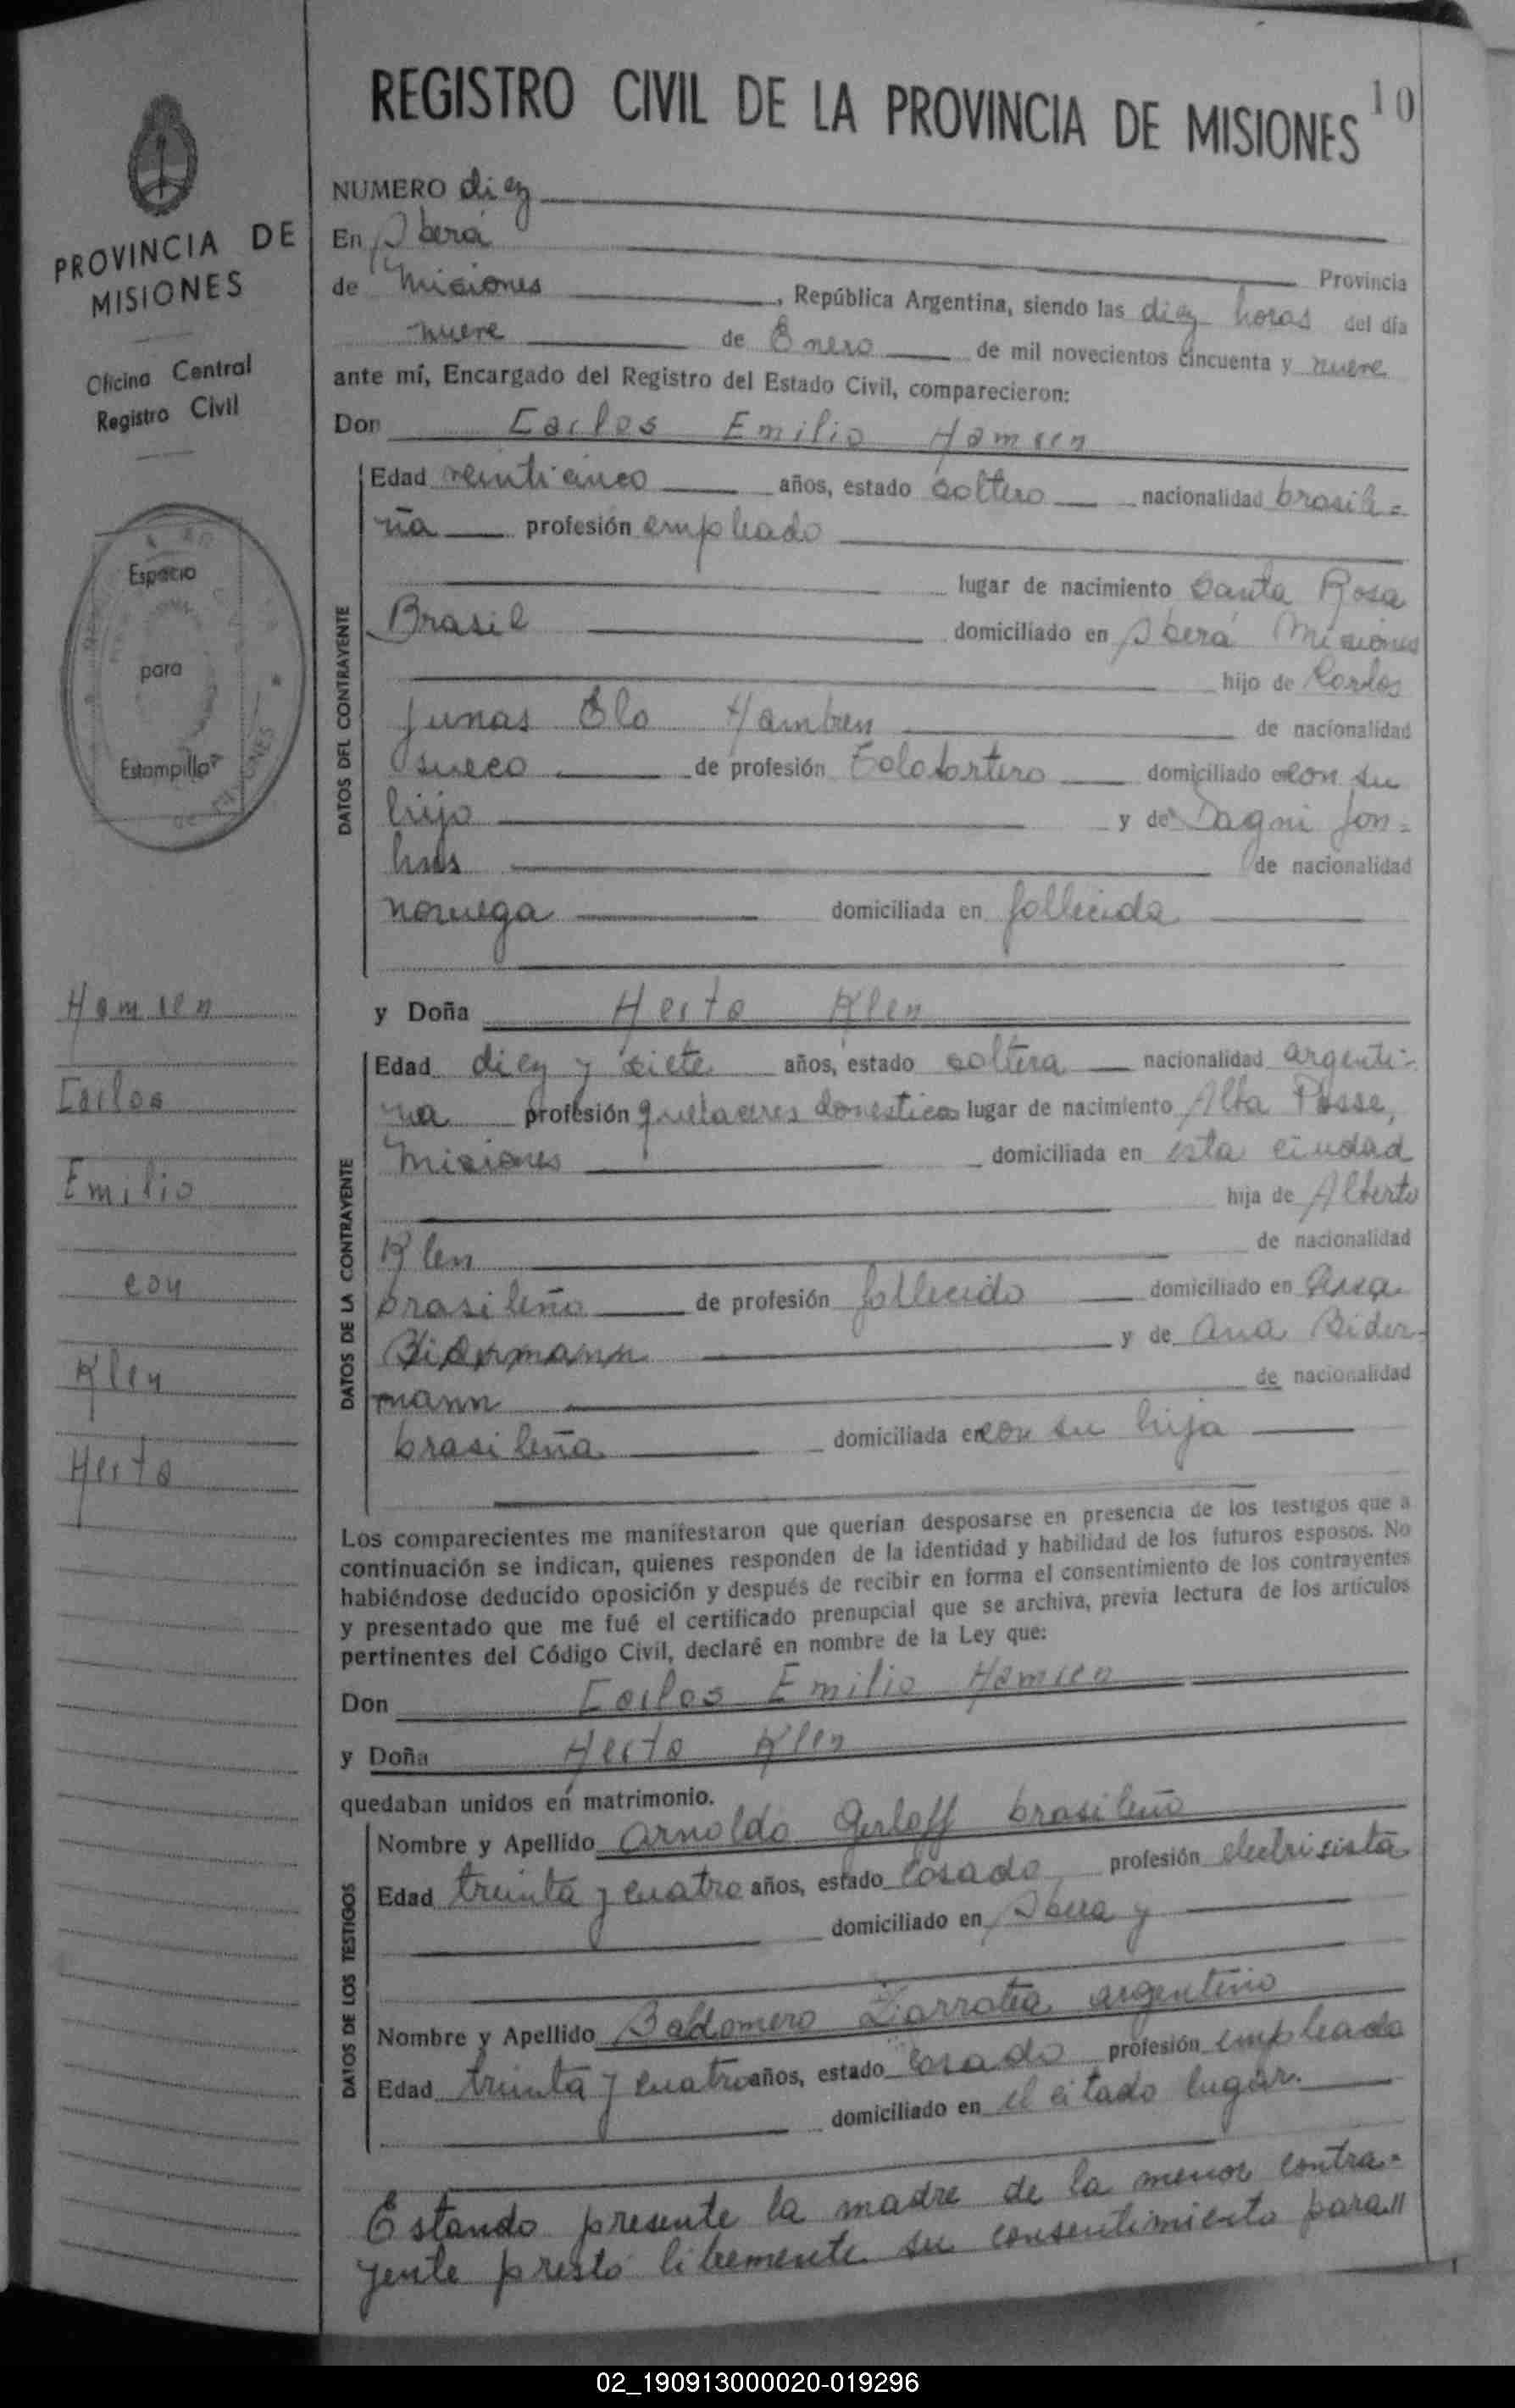 REGISTRO CIVIL DE LA PROVINCIA DE MISIONES 10
PROVINCIA DE
MISIONES
Oficina Central
Registro Civil
Espacio
para
Estampilla
Hamren
Carlos
Emilio
con
Klen
Herta
NUMERO diez
En Oberá Provincia
de Misiones, República Argentina, siendo las diez horas del día
nueve de Enero de mil novecientos cincuenta y nueve
ante mí, Encargado del Registro del Estado Civil, comparecieron:
Don Carlos Emilio Hamren
DATOS DEL CONTRAYENTE
Edad veinticinco años, estado soltero nacionalidad brasile=
ña profesión empleado
lugar de nacimiento Santa Rosa
Brasil domiciliado en Oberá Misiones
hijo de Carlos
Junas Olo Hambren de nacionalidad
sueco de profesión domiciliado con su
hijo y de Dagni Jon=
de nacionalidad
noruega domiciliada en fallecida
y Doña Herta Klen
DATOS DE LA CONTRAYENTE
Edad diez y siete años, estado soltera nacionalidad argenti=
na profesión quehaceres domesticos lugar de nacimiento Alba Posse,
Misiones domiciliada en esta ciudad
hija de Alberto
Klen de nacionalidad
brasileño de profesión fallecido domiciliado en
Bidermann y de Ana Bider-
mann de nacionalidad
brasileña domiciliada en con su hija
Los comparecientes me manifestaron que querían desposarse en presencia de los testigos que a
continuación se indican, quienes responden de la identidad y habilidad de los futuros esposos. No
habiéndose deducido oposición y después de recibir en forma el consentimiento de los contrayentes
y presentado que me fué el certificado prenupcial que se archiva, previa lectura de los artículos
pertinentes del Código Civil, declaré en nombre de la Ley que:
Don Carlos Emilio Hamren
y Doña Herta Klen
quedaban unidos en matrimonio.
DATOS DE LOS TESTIGOS
Nombre y Apellido Arnoldo Gerloff brasileño
Edad treinta y cuatro años, estado casado profesión electrisista
domiciliado en Obera y
Nombre y Apellido Baldomero Zarratea argentino
Edad treinta y cuatro años, estado casado profesión empleado
domiciliado en el citado lugar.
Estando presente la madre de la menor contra=
yente prestó libremente su consentimiento para//
02_190913000020-019296